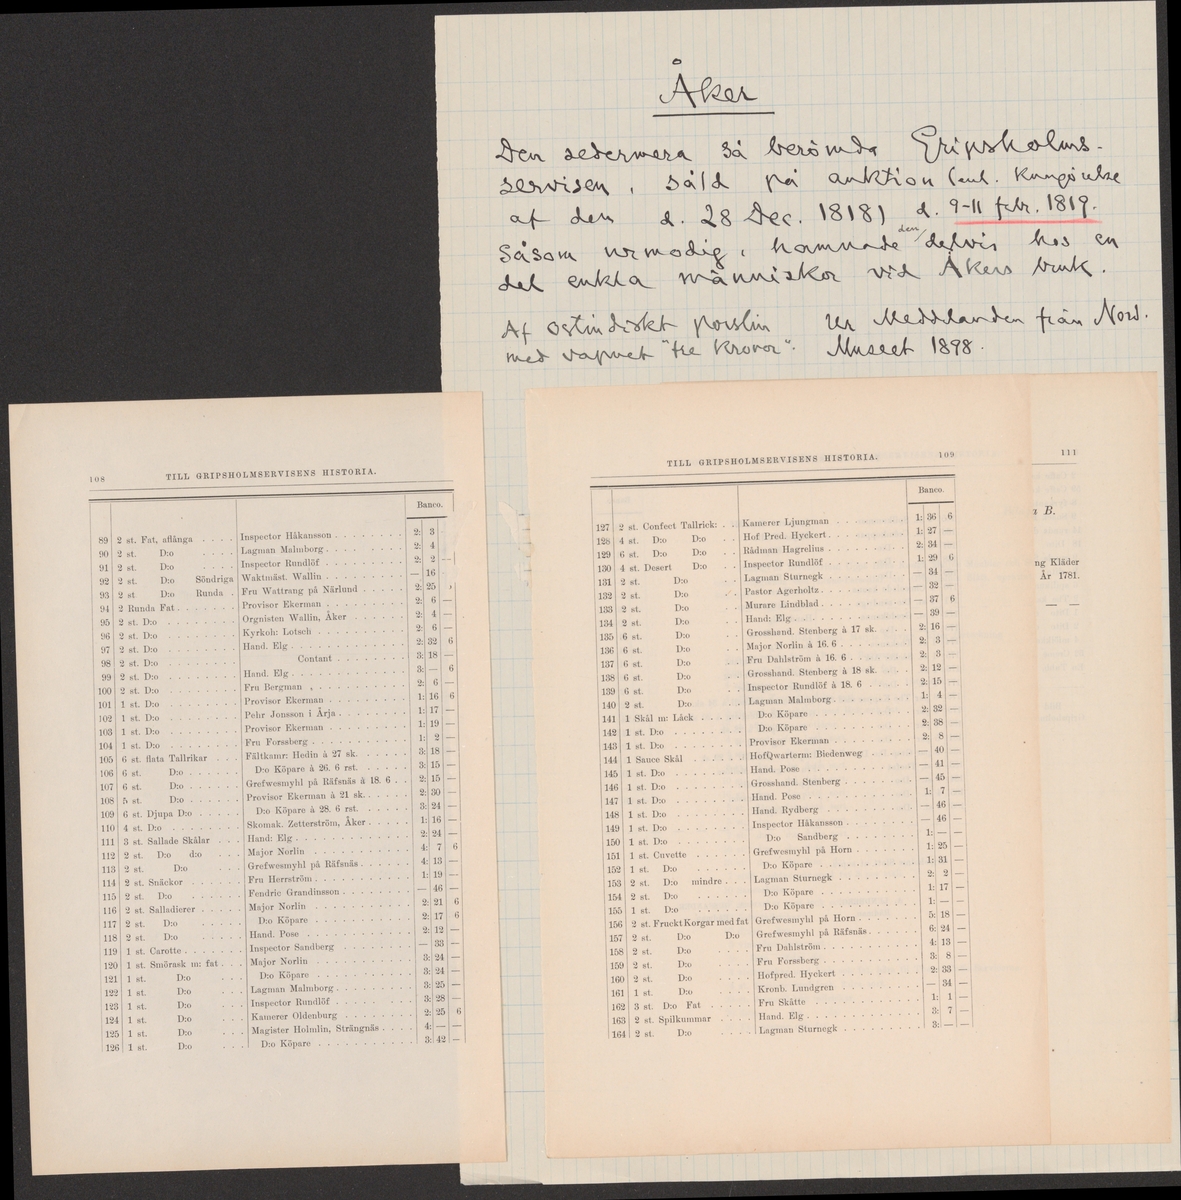 Åker
Den sedermera så berömda Gripsholms-
servisen, såld på auktion (enl. Kungörelse
af den d. 28 Dec. 1818) d. 9-11 febr. 1819.
såsom urmodig, hamnade den delvis hos en
del enkla människor vid Åkers bruk.
Af ostindiskt porslin Ur Meddelanden från Nord.
med vapnet "tre kronor". Museet 1898.
108 TILL GRIPSHOLMSERVISENS HISTORIA.
Banco.
89 2 st. Fat, aflånga . . . . Inspector Håkansson . . . . 2: 3
90 2 st. D:o . . . . Lagman Malmborg . . . . 2: 4
91 2 st. D:o . . . . Inspector Rundlöf . . . . 2: 2 —
92 2 st. D:o Söndriga Waktmäst. Wallin . . . . — 16
93 2 st D:o Runda . Fru Wattrang på Närlund . . . . 2: 25
94 2 Runda Fat . . . . Provisor Ekerman . . . . 2: 6 —
95 2 st. D:o . . . . Orgnisten Wallin, Åker . . . . 2: 4 —
96 2 st. D:o . . . . Kyrkoh: Lotsch . . . . 2: 6 —
97 2 st. D:o . . . . Hand. Elg . . . . 2: 32 6
98 2 st. D:o . . . . Contant . . . . 3: 18 —
99 2 st. D:o . . . . Hand. Elg . . . . 3: — 6
100 2 st. D:o . . . . Fru Bergman . . . . 2: 6 —
101 1 st. D:o . . . . Provisor Ekerman . . . . 1: 16 6
102 1 st. D:o . . . . Pehr Jonsson i Årja . . . . 1: 17 —
103 1 st. D:o . . . . Provisor Ekerman . . . . 1: 19 —
104 1 st. D:o . . . . Fru Forssberg . . . . 1: 2 —
105 6 st. flata Tallrikar . . Fältkamr: Hedin à 27 sk. . . . . 3: 18 —
106 6 st. D:o . . . D:o Köpare à 26. 6 rst. . . . . 3: 15 —
107 6 st. D:o . . . Grefwesmyhl på Räfsnäs à 18. 6 . . 2: 15 —
108 5 st. D:o . . . Provisor Ekerman à 21 sk. . . . . 2: 30 —
109 6 st. Djupa D:o . . . . D:o Köpare à 28. 6 rst. . . . . 3: 24 —
110 4 st. D:o . . . . Skomak. Zetterström, Åker . . . . 1: 16 —
111 3 st. Sallade Skålar . . Hand: Elg . . . . 2: 24 —
112 2 st. D:o d:o . . . Major Norlin . . . . 4: 7 6
113 2 st. D:o . . . Grefwesmyhl på Räfsnäs . . . . 4: 13 —
114 2 st. Snäckor . . . . Fru Herrström . . . . 1: 19 —
115 2 st. D:o . . . . Fendric Grandinsson . . . . — 46 —
116 2 st. Salladierer . . . . Major Norlin . . . . 2: 21 6
117 2 st. D:o . . . . D:o Köpare . . . . 2: 17 6
118 2 st. D:o . . . . Hand. Pose . . . . 2: 12 —
119 1 st. Carotte . . . . Inspector Sandberg . . . . — 33 —
120 1 st. Smörask m: fat . . Major Norlin . . . . 3: 24 —
121 1 st. D:o . . . D:o Köpare . . . . 3: 24 —
122 1 st. D:o . . . Lagman Malmborg . . . . 3: 25 —
123 1 st. D:o . . . Inspector Rundlöf . . . . 3: 28 —
124 1 st. D:o . . . Kamerer Oldenburg . . . . 2: 25 6
125 1 st. D:o . . . Magister Holmlin, Strängnäs . . . . 4: — —
126 1 st. D:o . . . D:o Köpare . . . . 3: 42 —
TILL GRIPSHOLMSERVISENS HISTORIA. 109
Banco.
127 2 st. Confect Tallrick: . . Kamerer Ljungman . . . . 1: 36 6
128 4 st. D:o D:o . . Hof Pred. Hyckert . . . . 1: 27 —
129 6 st. D:o D:o . . Rådman Hagrelius . . . . 2: 34 —
130 4 st. Desert D:o . . Inspector Rundlöf . . . . 1: 29 6
131 2 st. D:o . . Lagman Sturnegk . . . . — 34 —
132 2 st. D:o . . Pastor Agerholtz . . . . — 32 —
133 2 st. D:o . . Murare Lindblad . . . . — 37 6
134 2 st. D:o . . Hand: Elg . . . . — 39 —
135 6 st. D:o . . Grosshand. Stenberg à 17 sk. . . . . 2: 16 —
136 6 st. D:o . . Major Norlin à 16. 6 . . . . 2: 3 —
137 6 st. D:o . . Fru Dahlström à 16. 6 . . . . 2: 3 —
138 6 st. D:o . . Grosshand. Stenberg à 18 sk. . . . . 2: 12 —
139 6 st. D:o . . Inspector Rundlöf à 18. 6 . . . . 2: 15 —
140 2 st. D:o . . Lagman Malmborg . . . . 1: 4 —
141 1 Skål m: Låck . . . . D:o Köpare . . . . 2: 32 —
142 1 st. D:o . . . . D:o Köpare . . . . 2: 38 —
143 1 st. D:o . . . . Provisor Ekerman . . . . 2: 8 —
144 1 Sauce Skål . . . . HofQwarterm: Biedenweg . . . . — 40 —
145 1 st. D:o . . . . Hand. Pose . . . . — 41 —
146 1 st. D:o . . . . Grosshand. Stenberg . . . . — 45 —
147 1 st. D:o . . . . Hand. Pose . . . . 1: 7 —
148 1 st. D:o . . . . Hand. Rydberg . . . . — 46 —
149 1 st. D:o . . . . Inspector Håkansson . . . . — 46 —
150 1 st. D:o . . . . D:o Sandberg . . . . 1: — —
151 1 st. Cuvette . . . . Grefwesmyhl på Horn . . . . 1: 25 —
152 1 st. D:o . . . . D:o Köpare . . . . 1: 31 —
153 2 st. D:o mindre . . . Lagman Sturnegk . . . . 2: 2 —
154 2 st. D:o . . . . D:o Köpare . . . . 1: 17 —
155 1 st. D:o . . . . D:o Köpare . . . . 1: — —
156 2 st. Fruckt Korgar med fat Grefwesmyhl på Horn . . . . 5: 18 —
157 2 st. D:o D:o Grefwesmyhl på Räfsnäs . . . . 6: 24 —
158 2 st. D:o . . . . Fru Dahlström . . . . 4: 13 —
159 2 st. D:o . . . . Fru Forssberg . . . . 3: 8 —
160 2 st. D:o . . . . Hofpred. Hyckert . . . . 2: 33 —
161 1 st. D:o . . . . Kronb. Lundgren . . . . — 34 —
162 3 st. D:o Fat . . . . Fru Skåtte . . . . 1: 1 —
163 2 st. Spilkummar . . . . Hand. Elg . . . . 3: 7 —
164 2 st. D:o . . . . Lagman Sturnegk . . . . 3: — —
111
B.
ng Kläder
År 1781.
— —